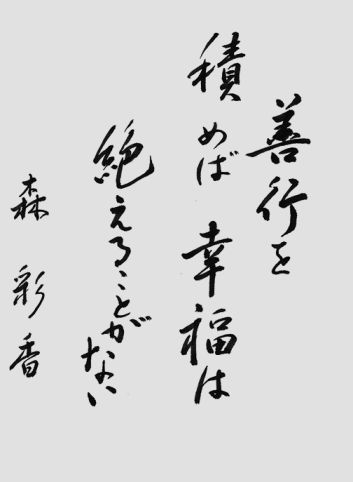 善行を
積めば幸福は
絶えることがない
森彩香